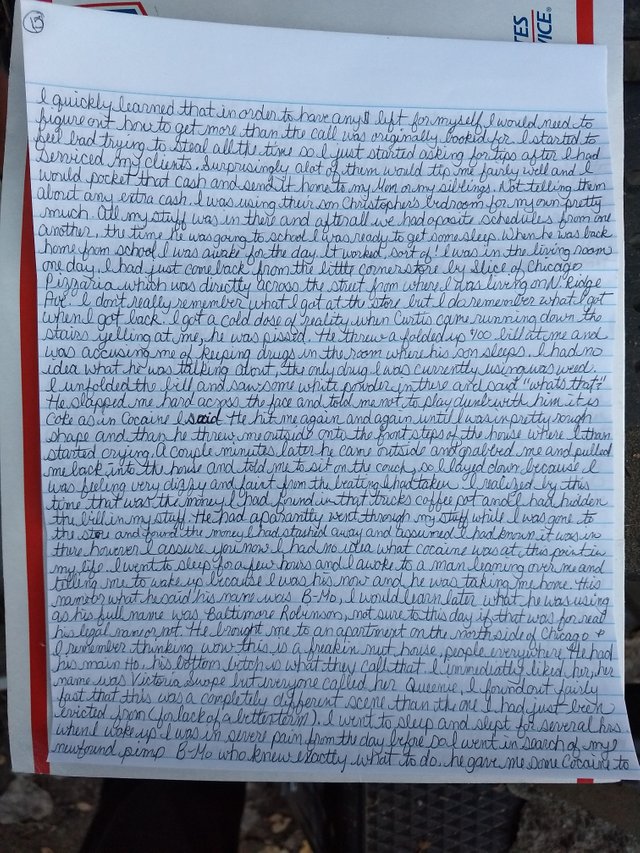 13
TES
VICE®
I quickly learned that in order to have any $ left for myself I would need to
figure out how to get more than the call was originally booked for. I started to
feel bad trying to steal all the time so I just started asking for tips after I had
serviced my clients. Surprisingly alot of them would tip me fairly well and I
would pocket that cash and send it home to my Mom or my siblings. Not telling them
about any extra cash. I was using their son Christopher's bedroom for my own pretty
much. All my stuff was in there and afterall we had oposite schedules from one
another, the time he was going to school I was ready to get some sleep. When he was back
home from school I was awake for the day. It worked, sort of! I was in the living room
one day, I had just come back from the little corner store by Slice of Chicago
Pizzaria which was directly across the street from where I was living on N. Ridge
Ave. I don't really remember what I got at the store but I do remember what I got
when I got back. I got a cold dose of reality when Curtis came running down the
stairs yelling at me, he was pissed. He threw a folded up $100 bill at me and
was accusing me of keeping drugs in the room where his son sleeps. I had no
idea what he was talking about, the only drug I was currently using was weed.
I unfolded the bill and saw some white powder in there and said "whats that?"
He slapped me hard across the face and told me not to play dumb with him it is
Coke as in Cocaine I said. He hit me again and again until I was in pretty rough
shape and than he threw me outside onto the front steps of the house where I than
started crying. A couple minutes later he came outside and grabbed me and pulled
me back into the house and told me to sit on the couch, so I layed down because I
was feeling very dizzy and faint from the beating I had taken. I realized by this
time that was the money I had found in that tricks coffee pot and I had hidden
the bill in my stuff. He had aparantly went through my stuff while I was gone to
the store and found the money I had stashed away and assumed I had known it was in
there however I assure you now I had no idea what cocaine was at, this point in
my life. I went to sleep for a few hours and I awoke to a man leaning over me and
telling me to wake up because I was his now and he was taking me home. His
name or what he said his name was B-Mo, I would learn later what he was using
as his full name was Baltimore Robinson, not sure to this day if that was for real
his legal name or not. He brought me to an apartment on the northside of Chicago &
I remember thinking wow this is a freakin nut house, people everywhere. He had
his main Ho, his bottom bitch is what they call that. I immediatly liked her, her
name was Victoria Swope but everyone called her Queenie, I found out fairly
fast that this was a completely different scene than the one I had just been
evicted from (for lack of a better term). I went to sleep and slept for several hrs
when I woke up I was in severe pain from the day before so I went in search of my
newfound pimp B-Mo who knew exactly what to do. he gave me some Cocaine to